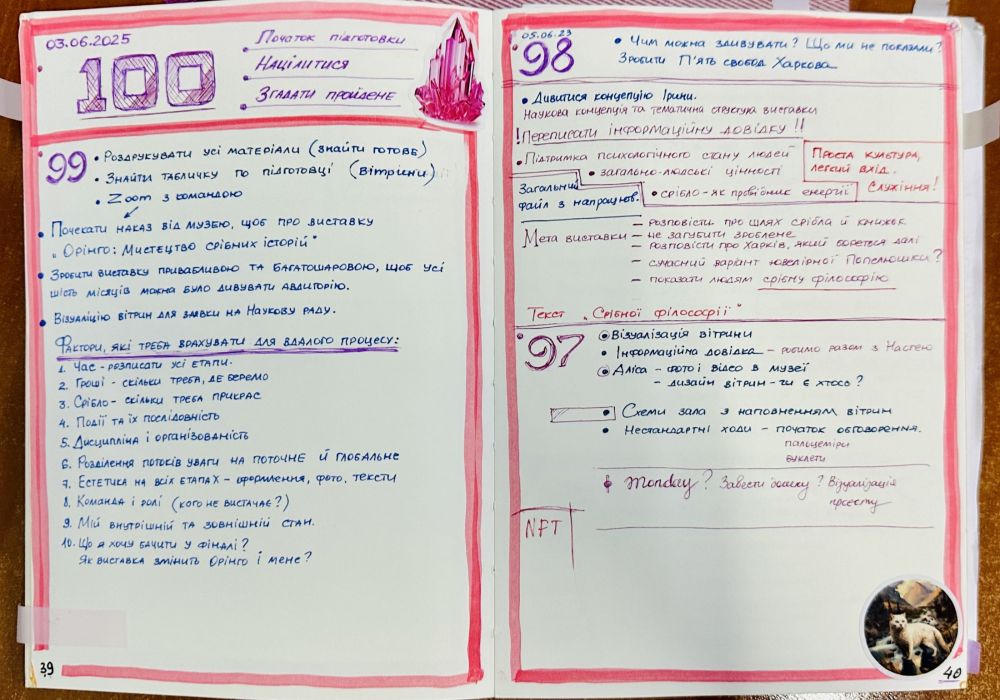 03.06.2025
100
Початок підготовки
Націлитися
Згадати пройдене
99
• Роздрукувати усі матеріали (знайти готове)
• Знайти табличку по підготовці (вітрини)
• Zoom з командою
• Почекати наказ від музею, щоб про виставку
„Орінго: Мистецтво срібних історій"
• Зробити виставку привабливою та багатошаровою, щоб усі
шість місяців можна було дивувати авдиторію.
• Візуаліцію вітрин для заявки на Наукову раду.
Фактори, які треба врахувати для вдалого процесу:
1. Час - розписати усі етапи.
2. Гроші - скільки треба, де беремо
3. Срібло - скільки треба прикрас
4. Події та їх послідовність
5. Дисципліна і організованість
6. Розділення потоків уваги на поточне й глобальне
7. Естетика на всіх етапах - оформлення, фото, тексти
8. Команда і ролі (кого не вистачає?)
9. Мій внутрішній та зовнішній стан.
10. Що я хочу бачити у фіналі?
Як виставка змінить Орінго і мене?
39
05.06.23
98
• Чим можна здивувати? Що ми не показали?
Зробити П'ять свобод Харкова
• Дивитися концепцію Ірини.
Наукова концепція та тематична структура виставки
! Переписати інформаційну довідку !!
• Підтримка психологічного стану людей
• загально-людські цінності
Проста культура,
легкий вхід.
Служіння!
Загальний
файл з напрацюв.
• срібло - як провідник енергії
Мета виставки
— розповісти про шлях срібла й книжок
— не загубити зроблене
— розповісти про Харків, який бореться далі
— сучасний варіант ювелірної Попелюшки?
— показати людям срібну філософію
Текст „Срібної філософії"
97
• Візуалізація вітрини
• Інформаційна довідка - робимо разом з Настею
• Аліса - фото і відео в музеї
- дизайн вітрин - чи є хтось?
• Схеми зала з наповненням вітрин
• Нестандартні ходи - початок обговорення.
пальцеміри
буклети
Monday? Завести дошку? Візуалізація
проєкту
NFT
40